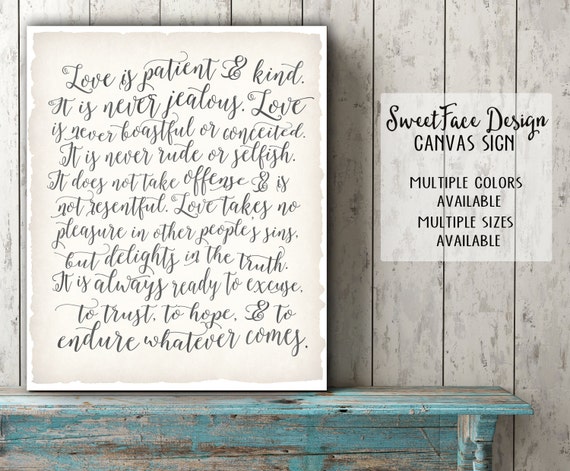 Love is patient & kind.
It is never jealous. Love
is never boastful or conceited.
It is never rude or selfish.
It does not take offense & is
not resentful. Love takes no
pleasure in other people's sins,
but delights in the truth.
It is always ready to excuse,
to trust, to hope, & to
endure whatever comes.
SweetFace Design
CANVAS SIGN
MULTIPLE COLORS
AVAILABLE
MULTIPLE SIZES
AVAILABLE